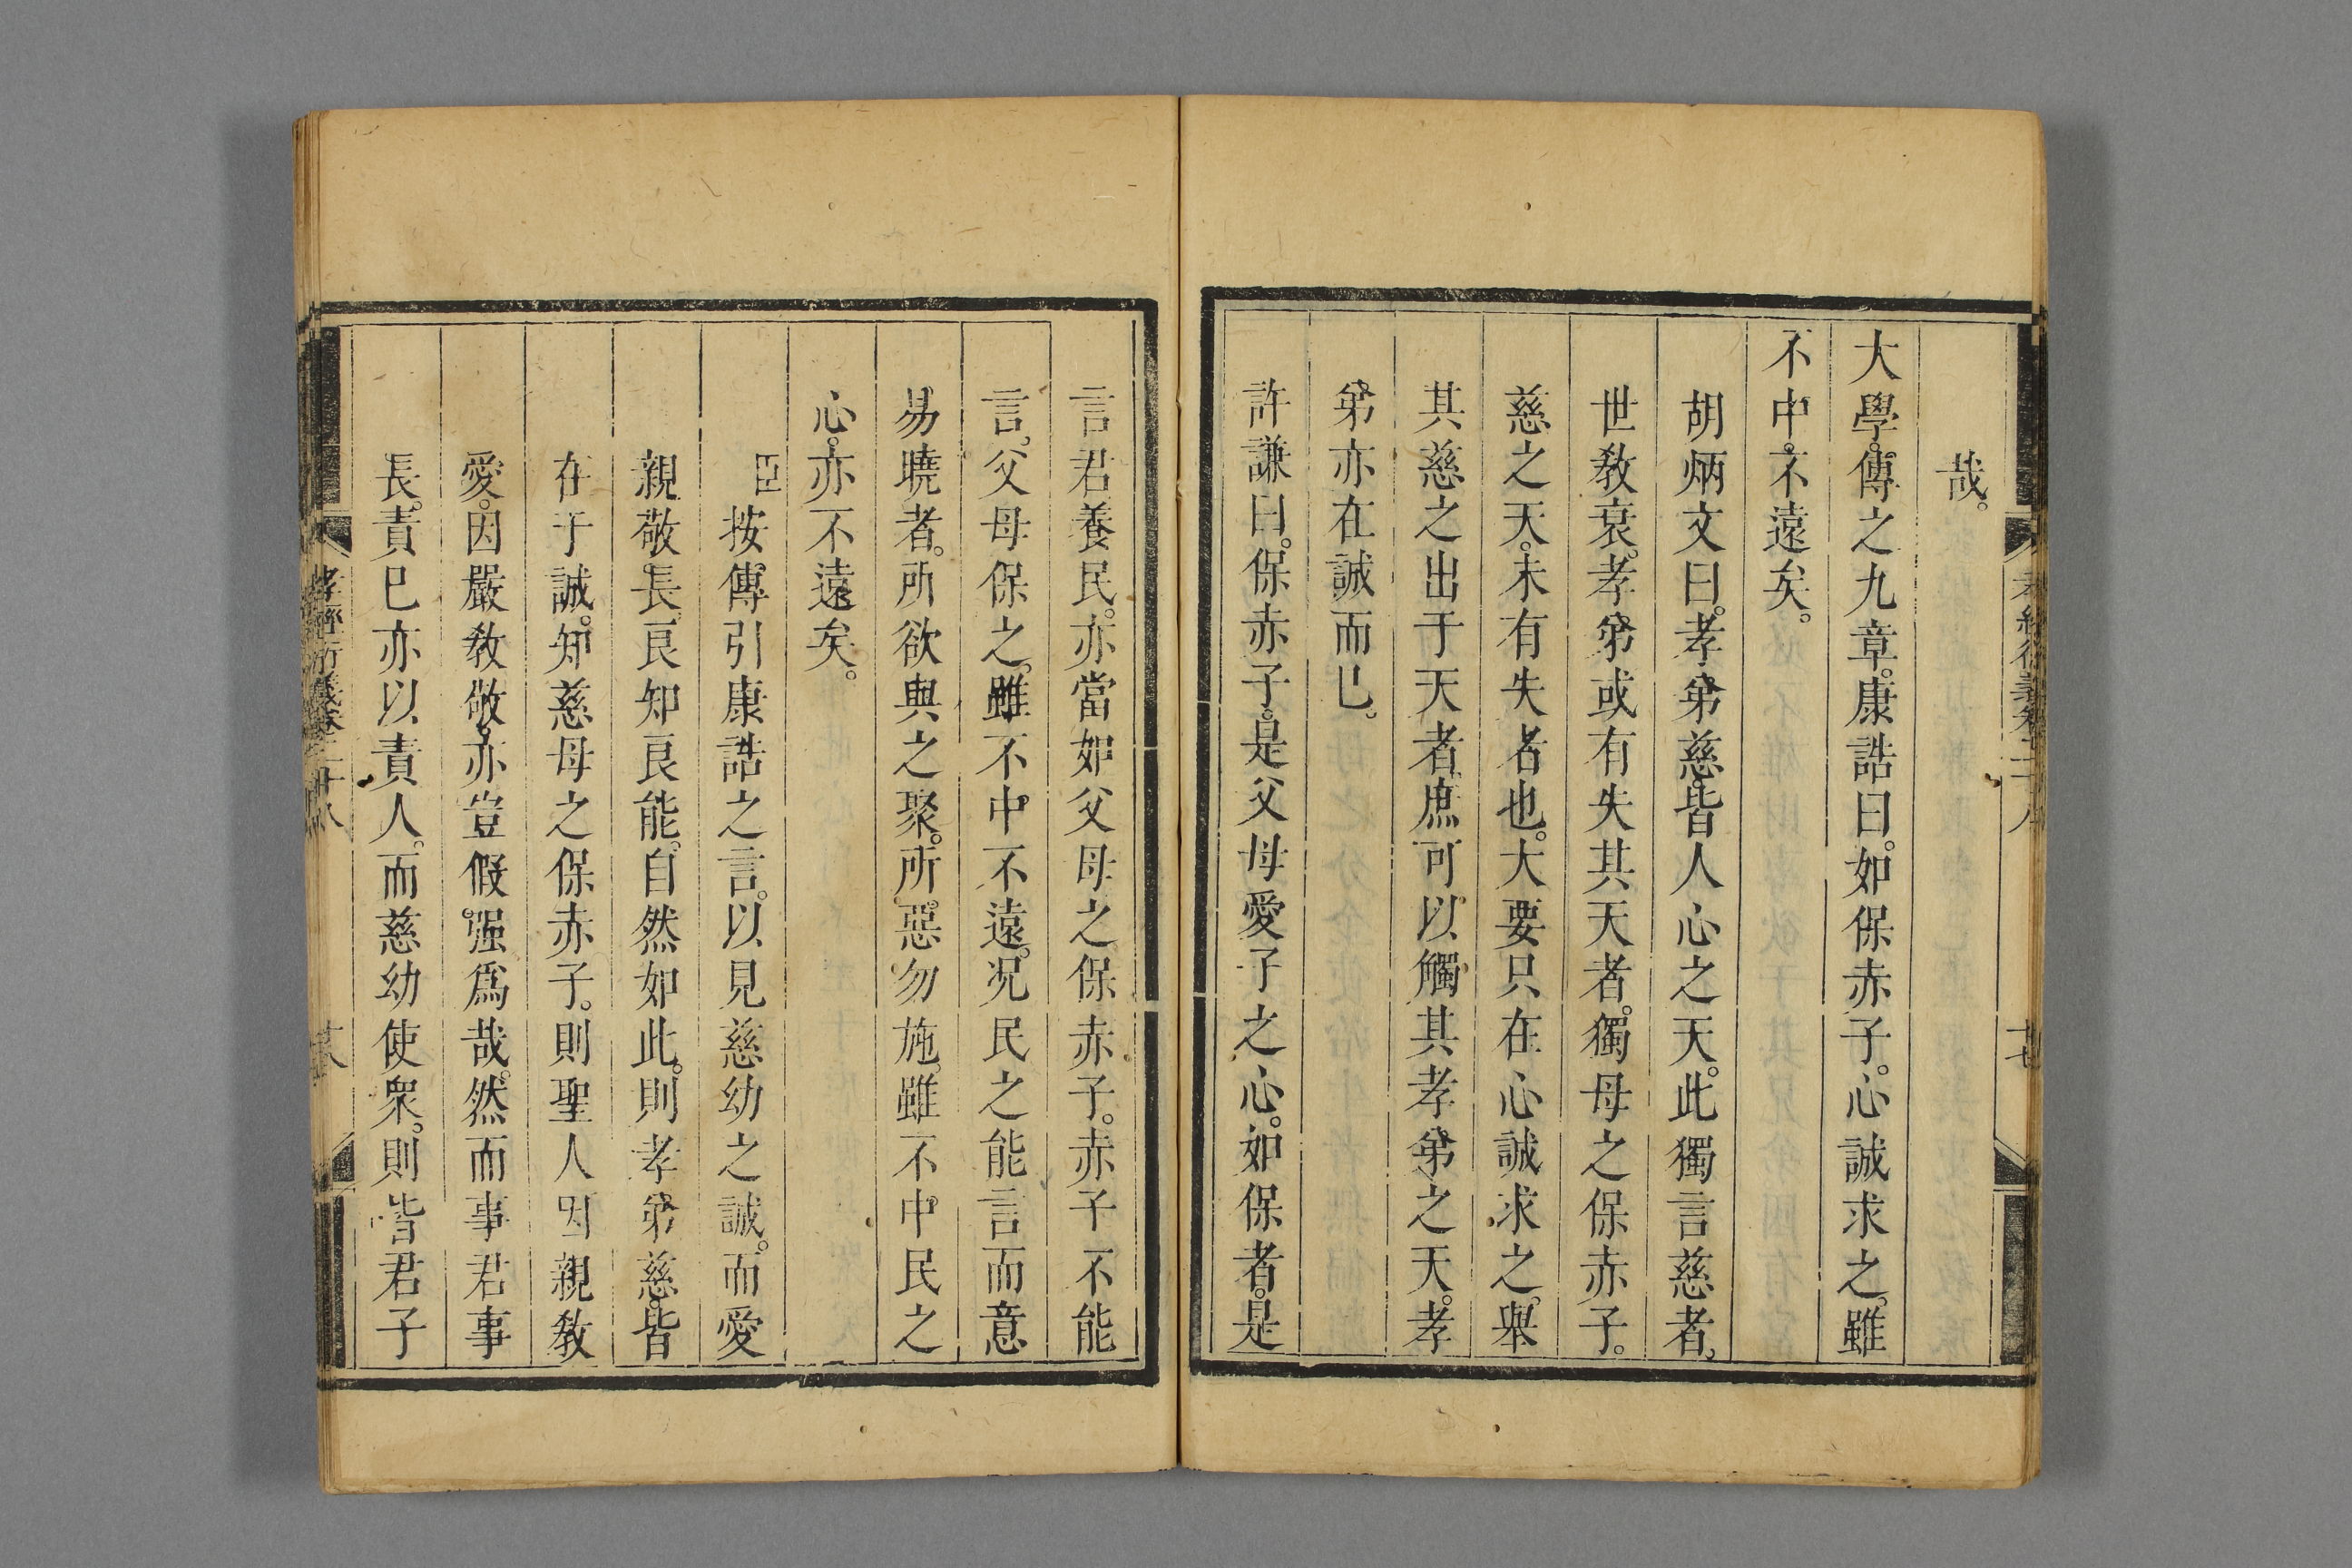 哉。
大學。傳之九章。康誥曰。如保赤子。心誠求之。雖
不中。不遠矣。
胡炳文曰。孝弟慈。皆人心之天。此獨言慈者。
世教衰。孝弟或有失其天者。獨母之保赤子。
慈之天。未有失者也。大要只在心誠求之。舉
其慈之出于天者。庶可以觸其孝弟之天。孝
弟亦在誠而已。
許謙曰。保赤子。是父母愛子之心。如保者。是
言君養民。亦當如父母之保赤子。赤子不能
言。父母保之。雖不中不遠。况民之能言而意
易曉者。所欲與之聚。所惡勿施。雖不中民之
心。亦不遠矣。
臣按。傳引康誥之言。以見慈幼之誠。而愛
親敬長。良知良能。自然如此。則孝弟慈。皆
在于誠。知慈母之保赤子。則聖人因親教
愛。因嚴教敬。亦豈假强爲哉。然而事君事
長。責已亦以責人。而慈幼使衆。則皆君子
孝經衍義卷二十八